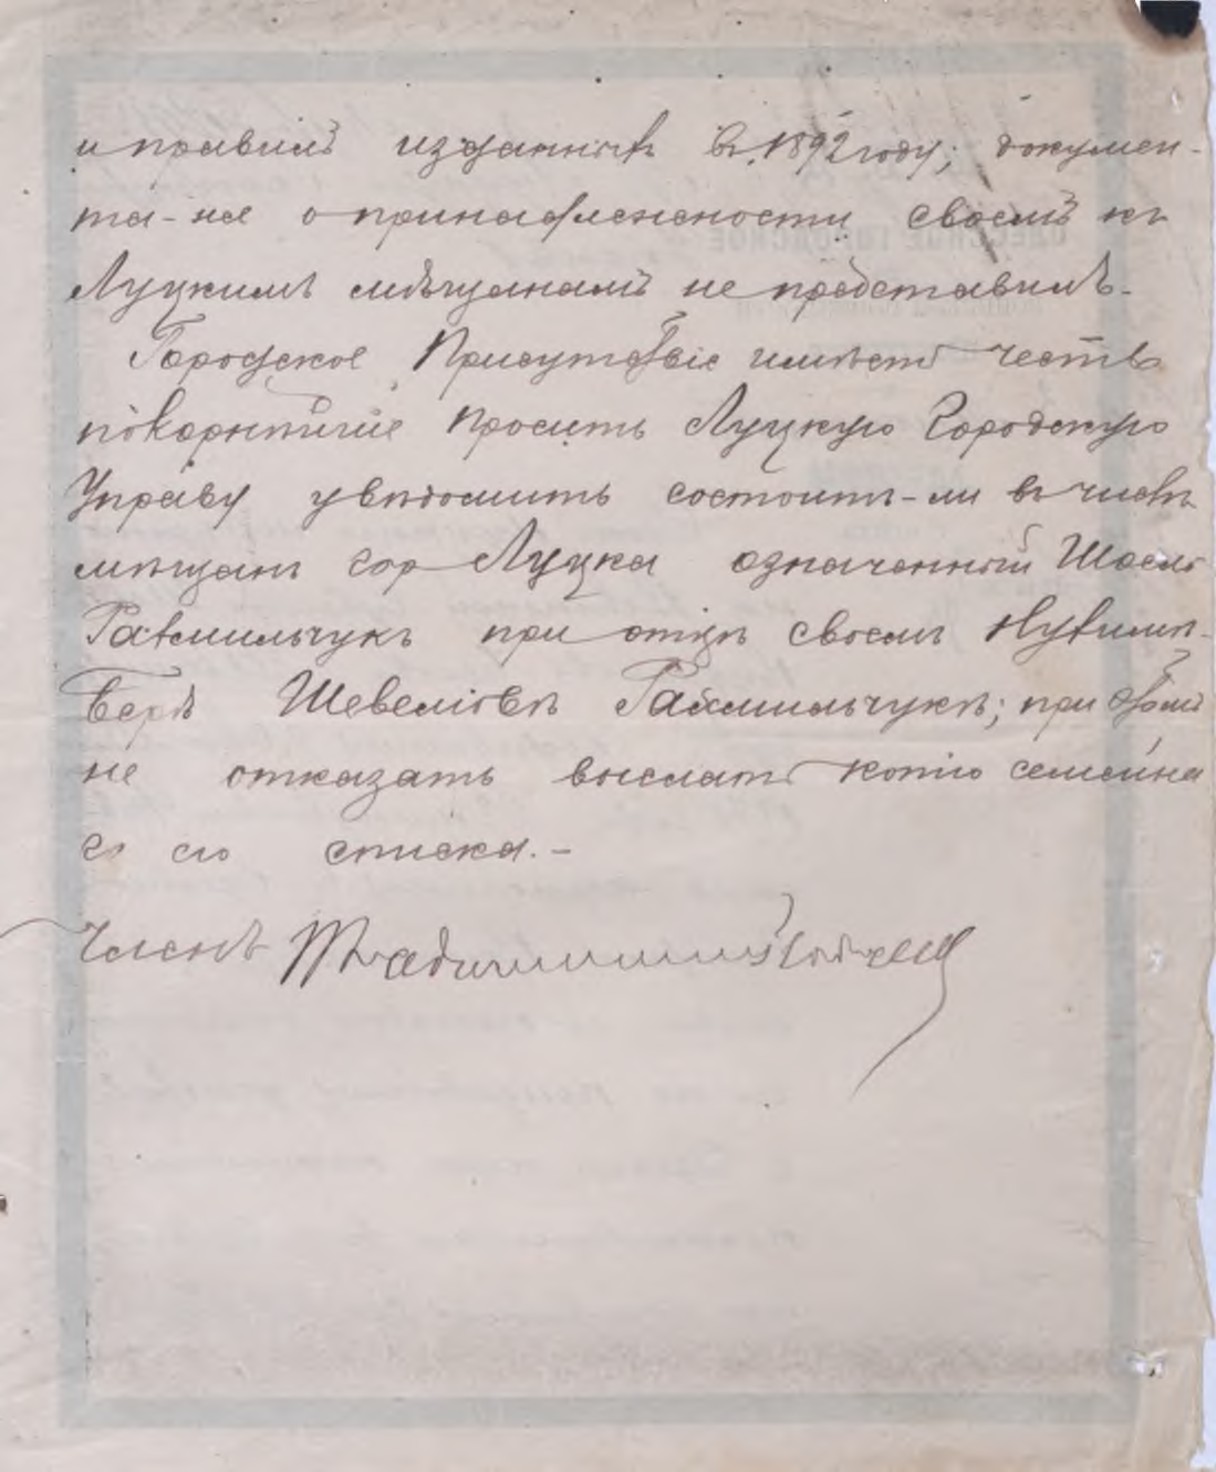 и правилъ изданныхъ въ 1892 году; докумен-
та-же о принадлежности своемъ къ
Луцкимъ мѣщанамъ не представилъ.
Городское Присутствіе имѣетъ честь
покорнѣйше просить Луцкую Городскую
Управу увѣдомить состоитъ-ли въ числѣ
мѣщанъ гор Луцка означенный Шаель
Рахмильчукъ при отцѣ своемъ Нухимъ-
Беръ Шевелювѣ Рахмильчукѣ; при чемъ
не отказать выслать копію семейна
го его списка.-
Членъ